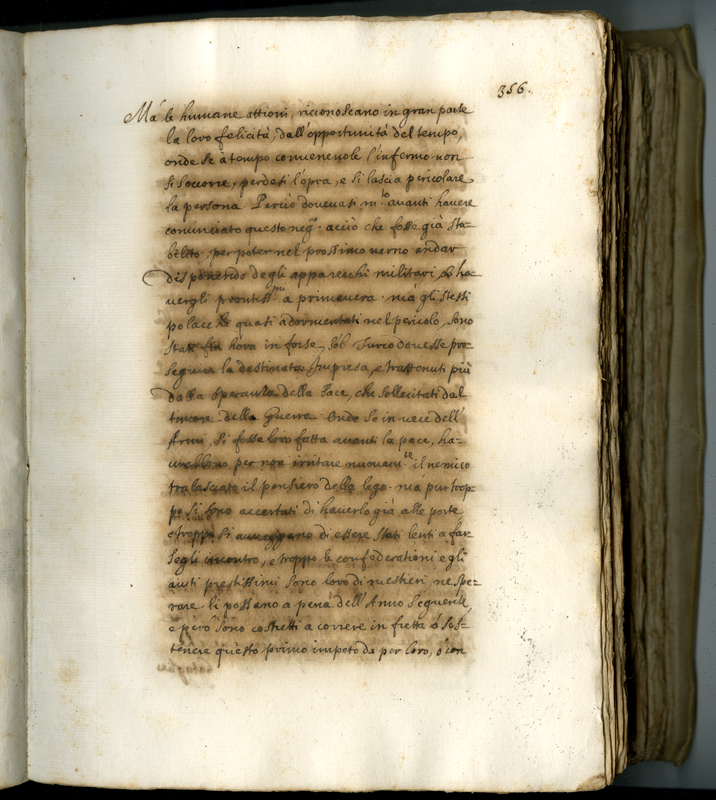 356.
Mà le humane attioni, riconoscano in gran parte
la loro felicità, dall'opportunità del tempo,
onde se a tempo conueneuole l'infermo non
si soccorre, perdesi l'opra, e si lascia pericolare
la persona. Perciò doueuati m.to auanti hauere
cominciato questo neg.o acciò che fosse già sta=
bilito, per poter nel prossimo uerno andar
disponendo degli apparecchi militari, & ha
uergli prontiss.mi a primauera. mà gli stessi
polacchi quasi adormentati nel pericolo, sono
stati fin hora in forse, se'l Turco douesse pro=
seguire la destinata Impresa, e trattenuti più
dalla speranza della Pace, che sollecitati dal
timore della Guerra. Onde se in uece dell'
Armi, si fosse loro fatta auanti la pace, ha=
urebbono per non irritare nuouam.te il nemico
tralasciato il pensiero della lega. mà pur trop=
po si sono accertati di hauerlo già alle porte
e troppo si auueggono di essere stati lenti a far
segli incontro, e troppo le confederationi e gli
aiuti prestissimi sono loro di mestieri, ne spe=
rare li possano a pena dell'Anno seguente,
e però sono costretti a correre in fretta a sos=
tenere questo primo impeto da per loro, ò con